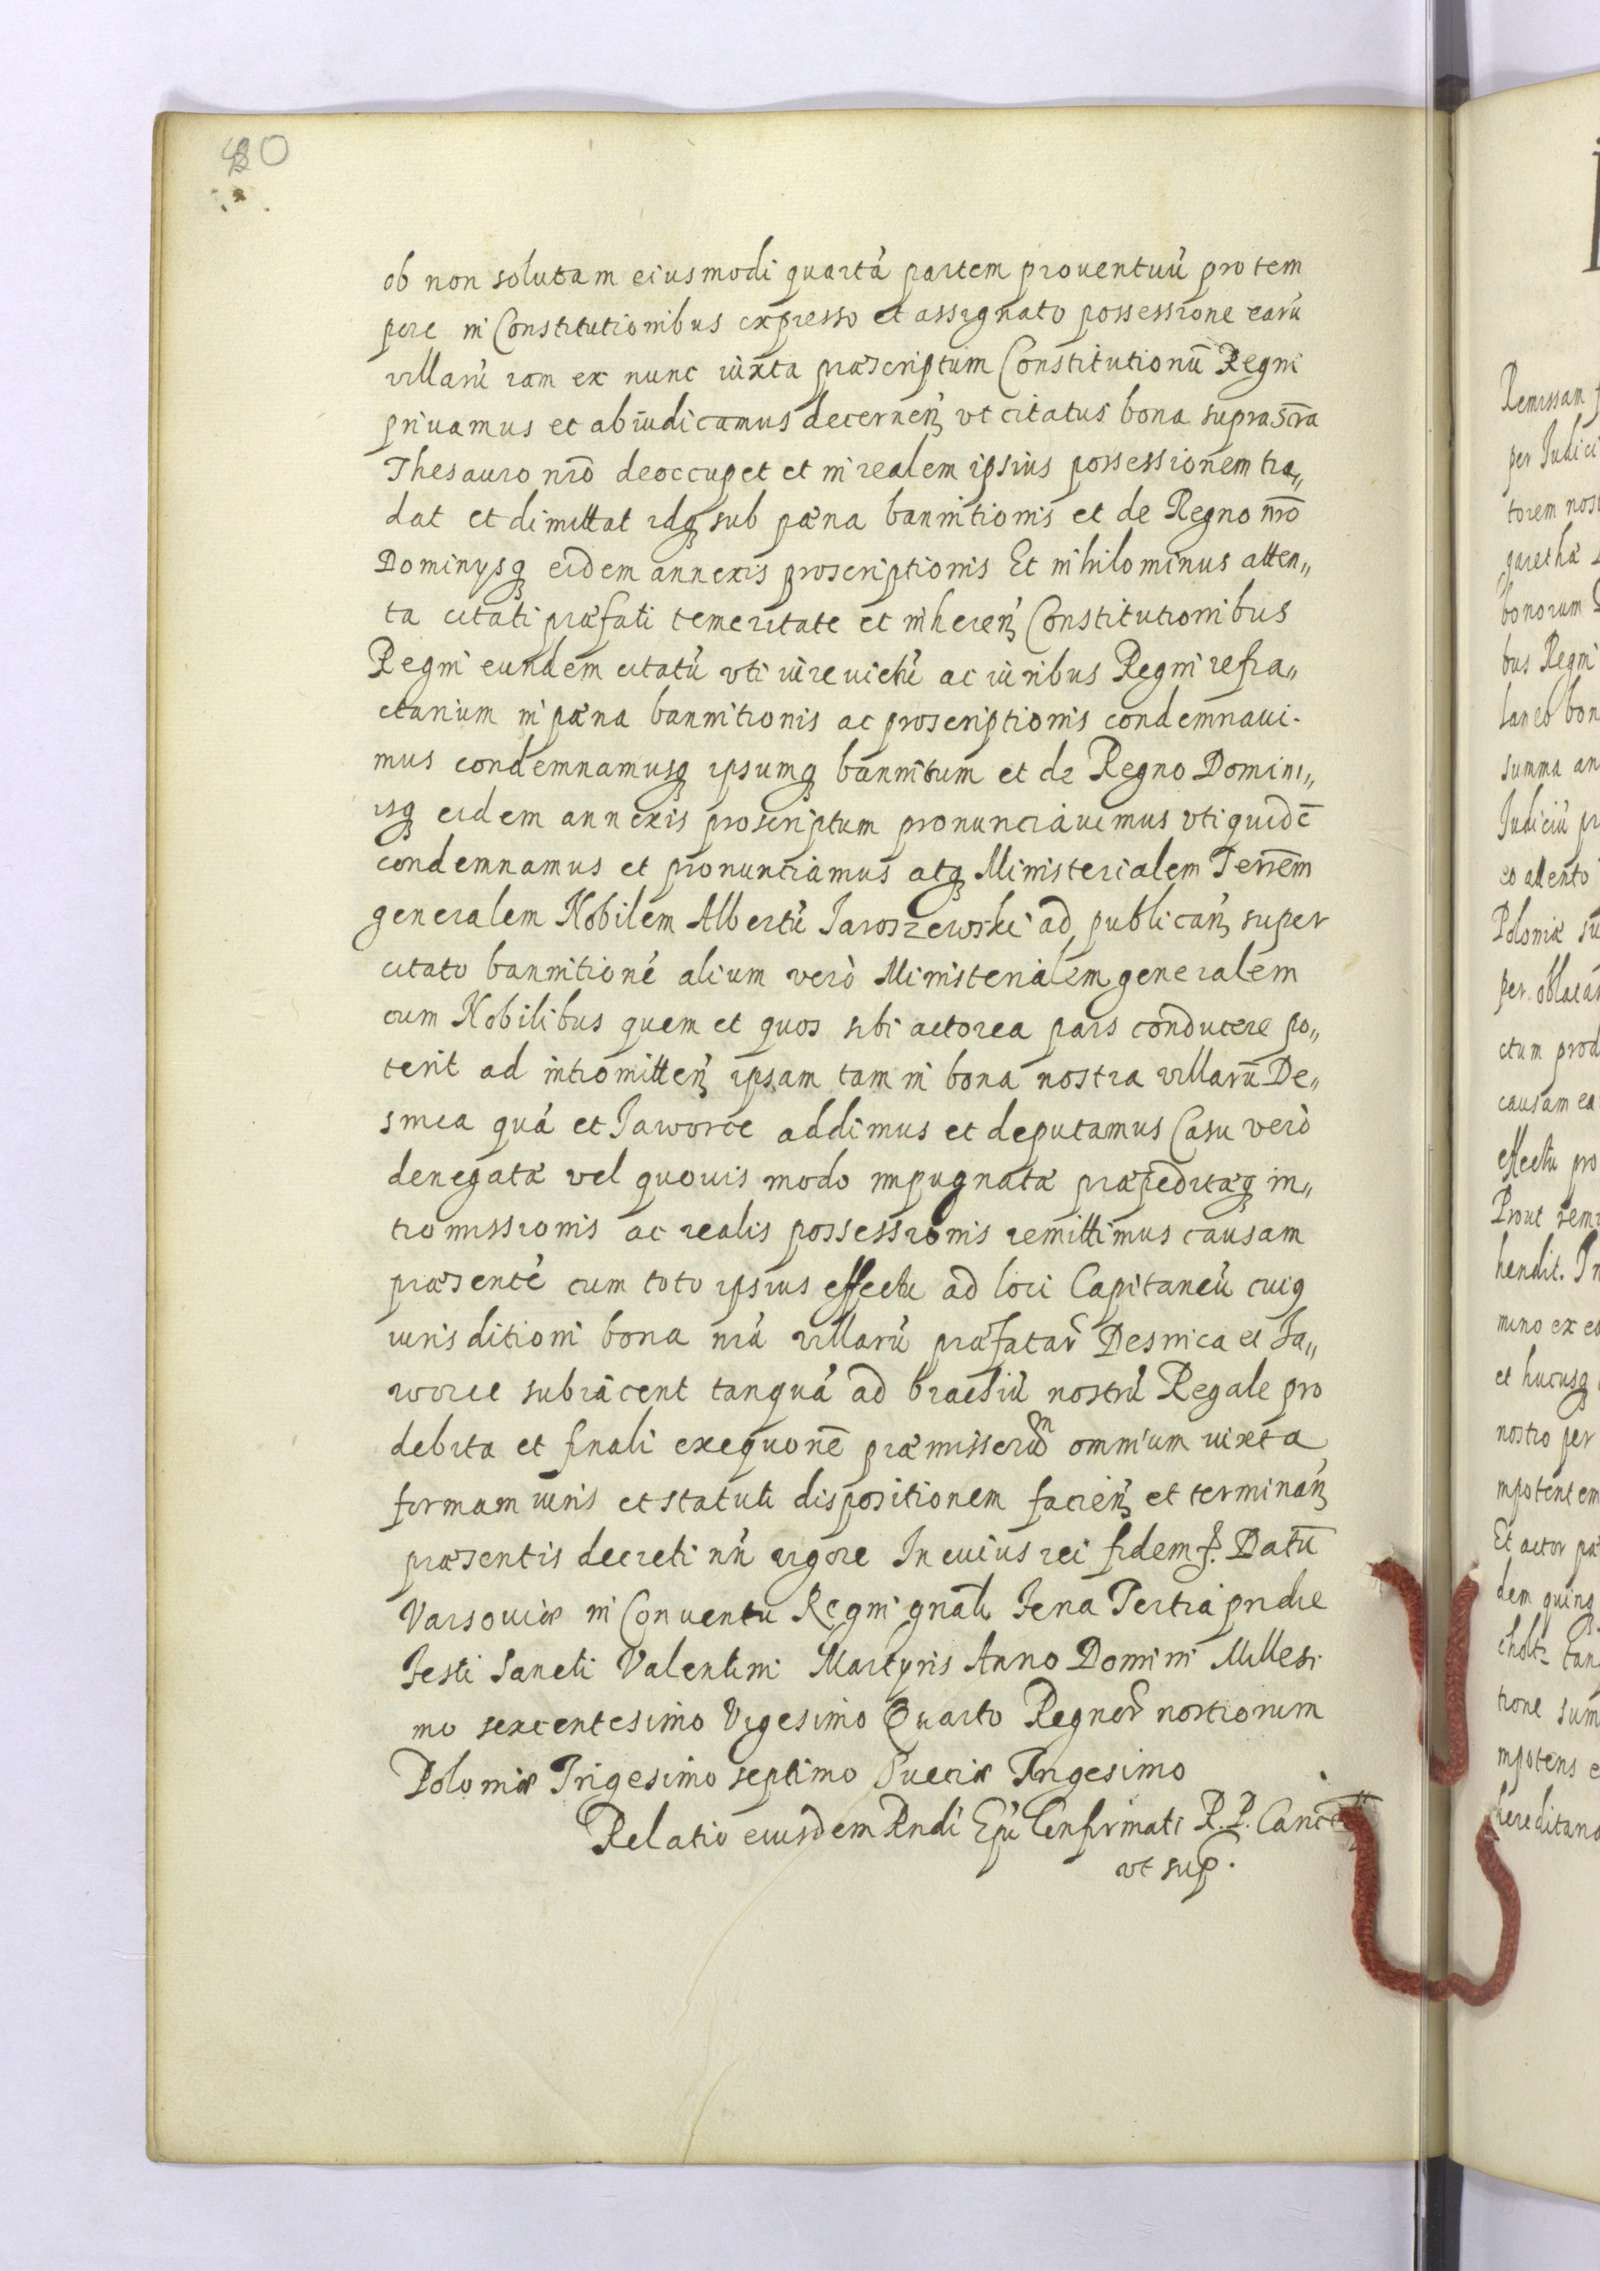 ob non solutam eiusmodi quartá partem prouentuú pro tem
pore in Constitutionibus expresso et assignato possessione earú
villarú iam ex nunc iuxta præscriptum Constitutionū Regni
priuamus et abiudicamus decerneń vt citatus bona suprascr̄a
Thesauro nr̄o deoccupet et in realem ipsius possessionem tra„
dat et dimittat idq sub pæna bannitionis et de Regno nr̄o
Dominysq eidem annexis proscriptionis Et nihilominus atten„
ta citati præfati temeritate et inhereń Constitutionibus
Regni eundem citatú vti iure victú ac iuribus Regni refra„
ctarium in pæna bannitionis ac proscriptionis condemnaui-
mus condemnamusq ipsumq bannitum et de Regno Domini„
isq eidem annexis proscriptum pronunciauimus vti quidē
condemnamus et pronuntiamus atq Ministerialem Terrēm
generalem Nobilem Albertú Jaroszewski ad publicań super
citato bannitioné alium verò Ministerialem generalem
cum Nobilibus quem et quos sibi actorea pars conducere po„
terit ad intromitteń ipsam tam in bona nostra villarū De„
snica quá et Jaworce addimus et deputamus Casu verò
denegatæ vel quouis modo impugnatæ præpeditæq in„
tromissionis ac realis possessionis remittimus causam
præsenté cum toto ipsius effectu ad loci Capitaneú cuiq
iurisditioni bona nr̄a villarú præfatar Desnica et Ja„
worce subiacent tanquá ad brachiú nostrú Regale pro
debita et finali exequonē præmissorum omnium iuxta
formam iuris et statuti dispositionem facień et terminań
præsentis decreti nr̄i vigore In cuius rei fidem p. Datū
Varsouiæ in Conuentu Regni gnali Feria Tertia pridie
Festi Sancti Valentini Martyris Anno Domini Millesi
mo sexcentesimo Vigesimo Quarto Regnor nostrorum
Poloniæ Trigesimo septimo Sueciæ Trigesimo
Relatio eiusdem Rndi Epi Confirmati R. P. Canc
vt sup.